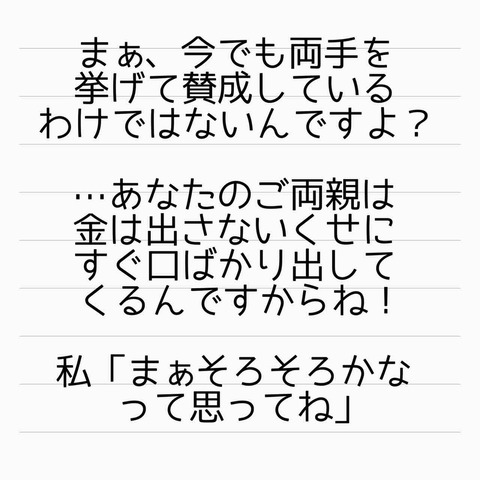 まぁ、今でも両手を
挙げて賛成している
わけではないんですよ？
…あなたのご両親は
金は出さないくせに
すぐ口ばかり出して
くるんですからね！
私「まぁそろそろかな
って思ってね」